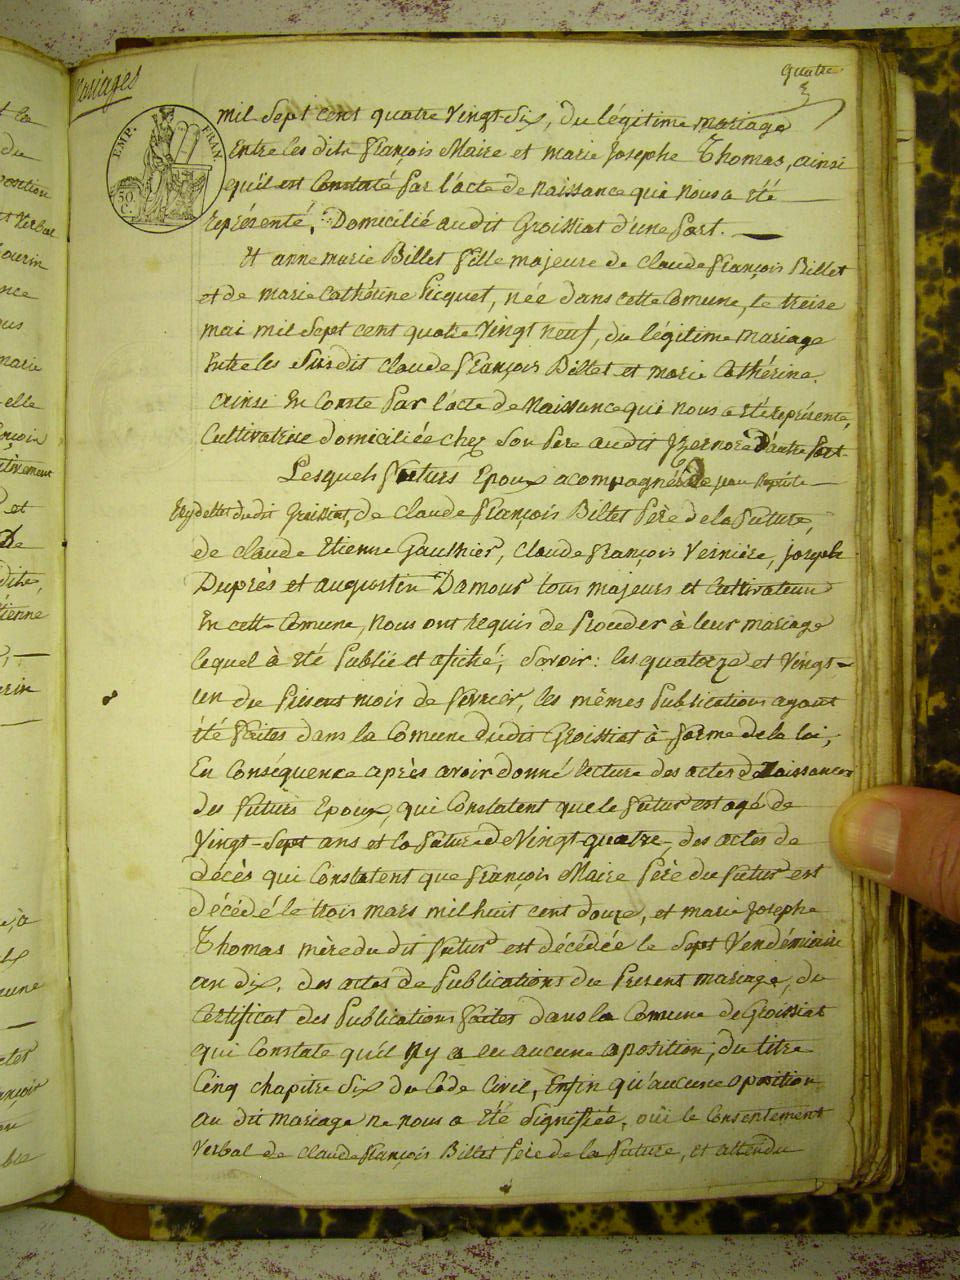 Mariages
quatre
EMP. FRAN.
50. C.
mil Sept cent quatre Vingt-Six, du légitime mariage
Entre les dits François Maire et marie Josephe Thomas, ainsi
qu'il est Constaté Par l'acte de naissance qui nous a été
représenté, Domicilié au dit Groissiat d'une Part.
Et anne marie Billet fille majeure de claude François Billet
et de marie Cathérine Picquet, née dans cette Comune, le treise
mai mil Sept cent quatre Vingt neuf, du légitime mariage
Entre les Susdit claude François Billet et marie Cathérine
ainsi En Conste Par l'acte de Naissance qui nous a été représenté,
Cultivatrice domiciliée chez Son Pere au dit Izernore D'autre Part.
Lesquels futurs Epoux acompagnés de jean Baptiste
du dit Groissiat, de claude François Billet Père de la Future,
de claude Etienne Gauthier, claude François Vernière, joseph
Duprès et augustin Damour tous majeurs et Cultivateurs
En cette Comune, nous ont requis de Proceder à leur mariage
lequel à été Publié et afiché, Savoir : les quatorze et Vingt-
un du Présent mois de fevrier, les mêmes Publications ayant
été Faites dans la Comune du dit Groissiat à forme de la loi,
En Conséquence après avoir donné lecture des actes de Naissances
des Futurs Epoux, qui Constatent que le Futur est agé de
Vingt-Sept ans et la Future de Vingt-quatre, des actes de
décès qui Constatent que François Maire Père du Futur est
décédé le trois mars mil huit cent douze, et marie Josephe
Thomas mère du dit Futur est décédée le Sept Vendémiaire
an dix, des actes de Publications du Présent mariage, du
Certificat des Publications Faites dans la Comune de Groissiat
qui Constate qu'il N'y a eu aucune oposition, du titre
Cinq chapitre Six du Code Civil, Enfin qu'aucune oposition
au dit mariage ne nous a été Signifiée, oüi le Consentement
Verbal de claude François Billet Père de la Future, et attendu